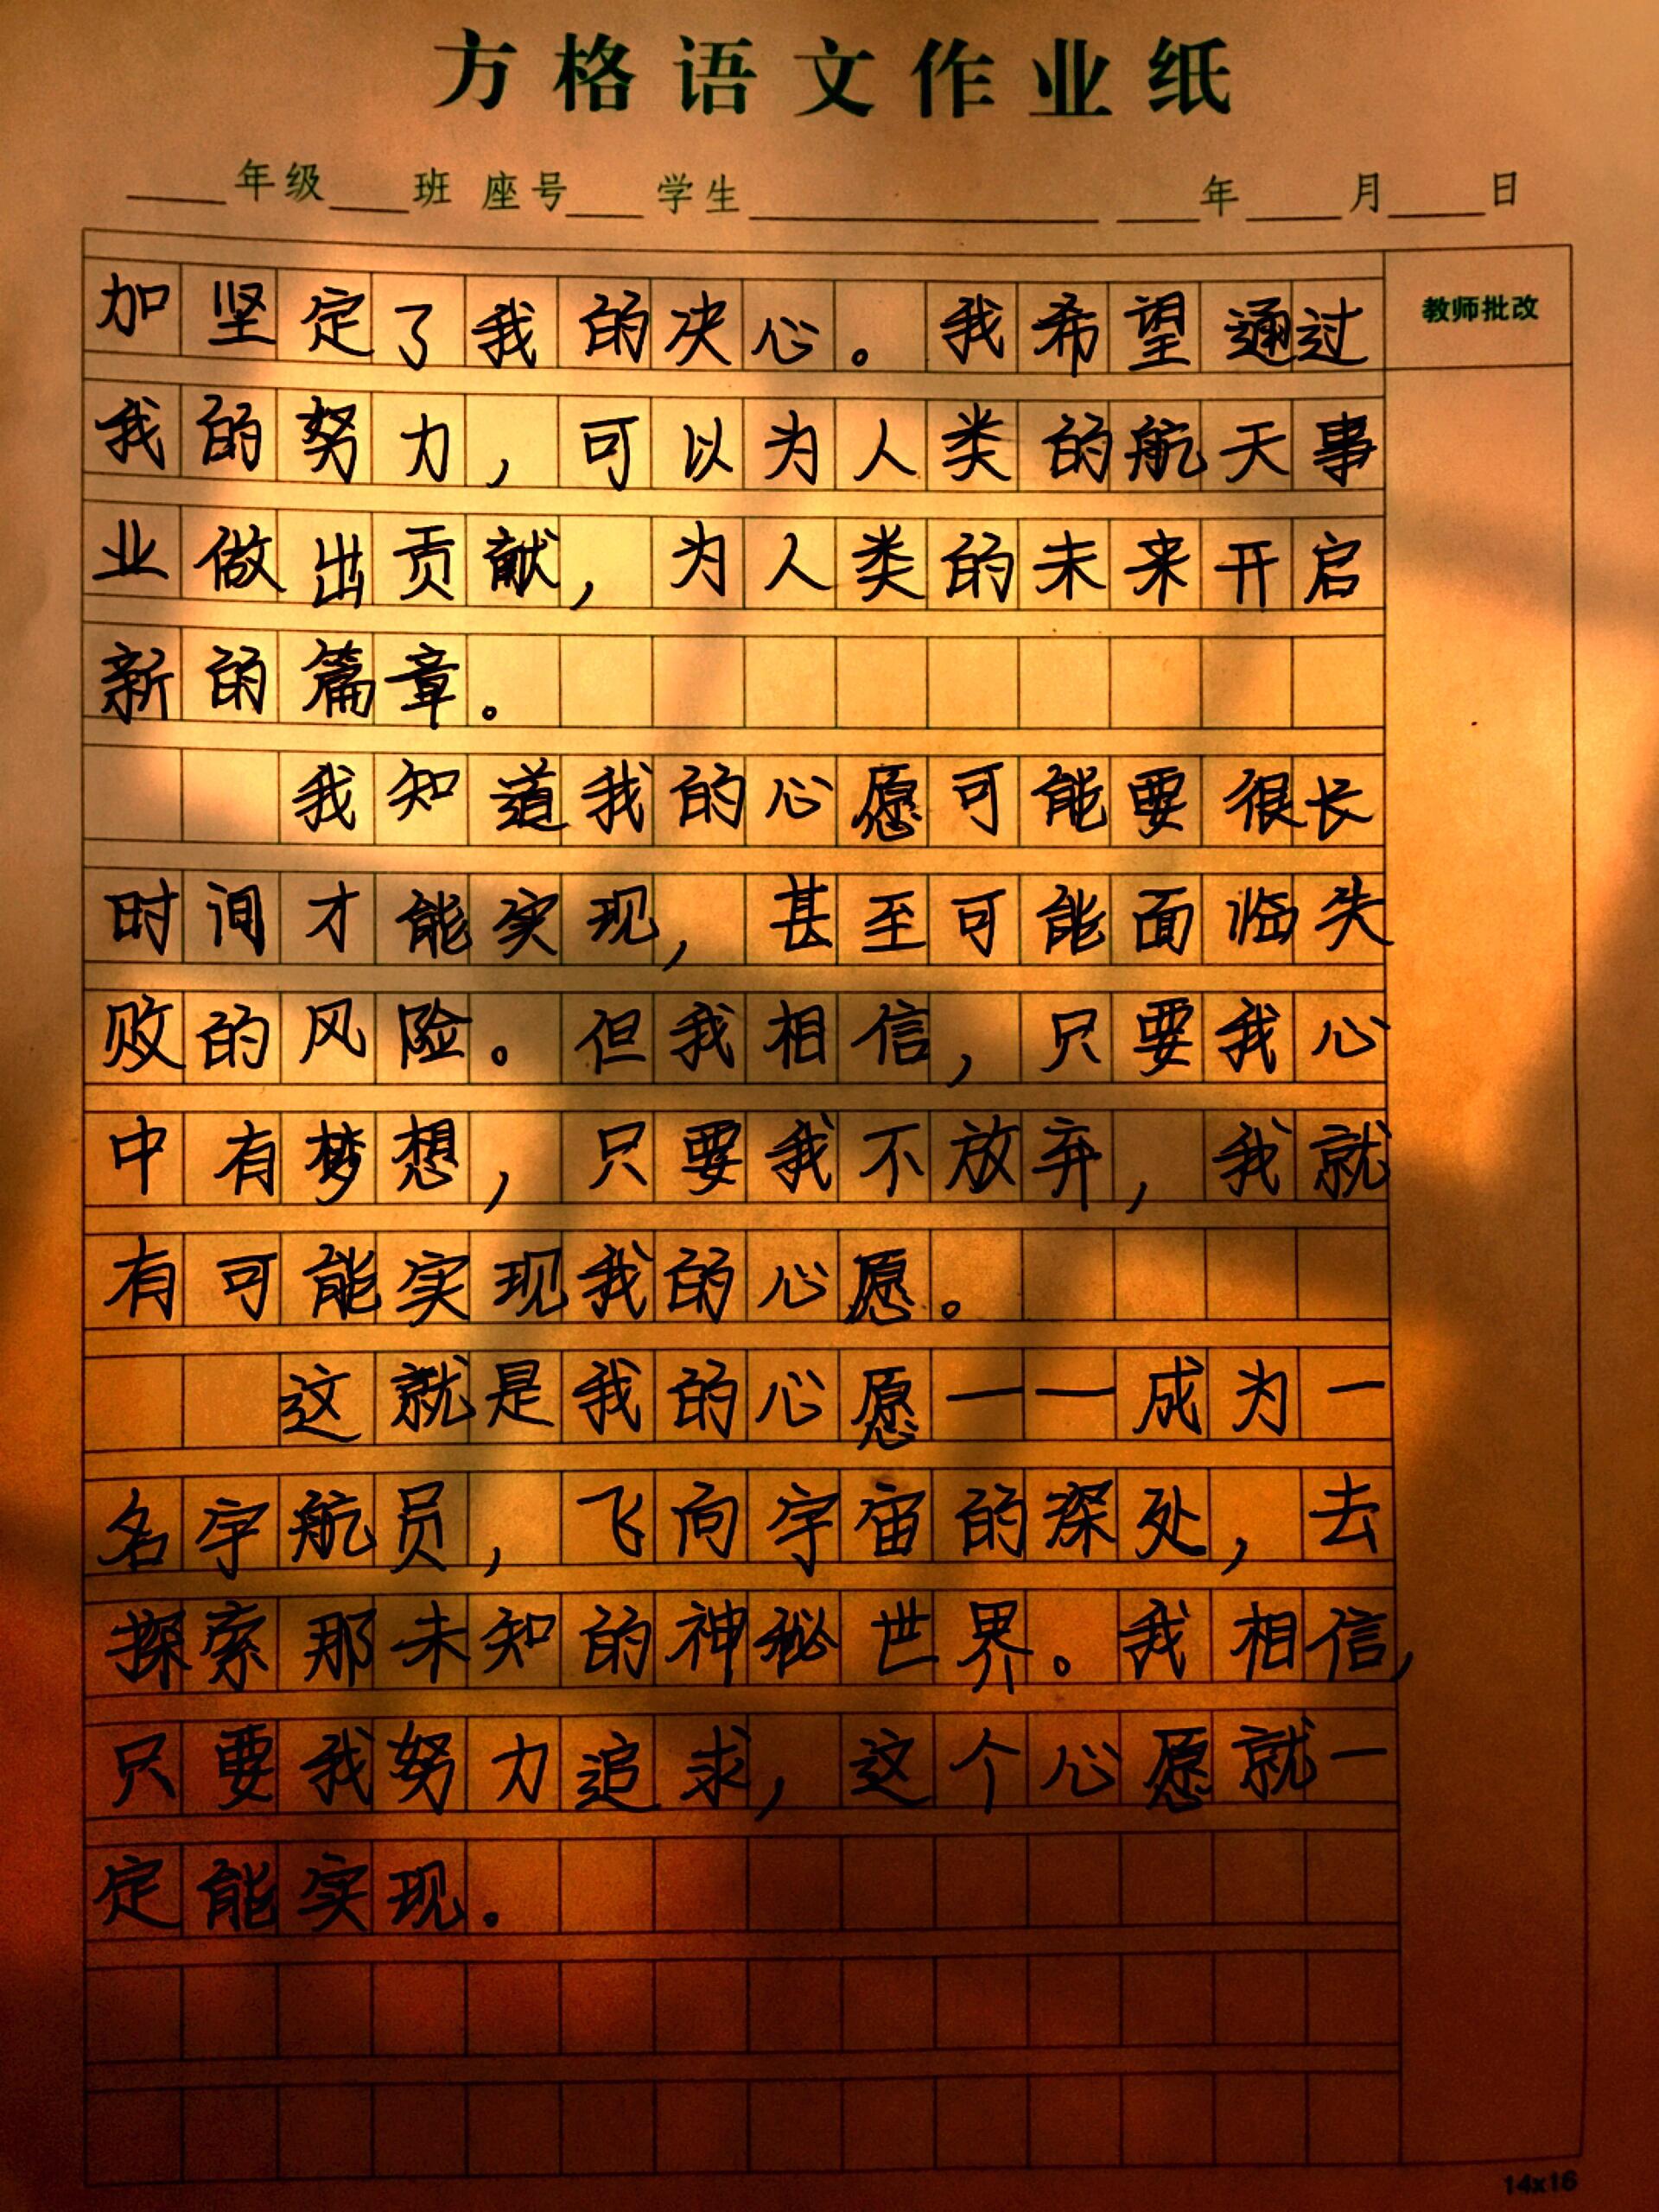 方格语文作业纸
____年级____班 座号____ 学生________________ ____年____月____日
教师批改
加坚定了我的决心。我希望通过
我的努力，可以为人类的航天事
业做出贡献，为人类的未来开启
新的篇章。
我知道我的心愿可能要很长
时间才能实现，甚至可能面临失
败的风险。但我相信，只要我心
中有梦想，只要我不放弃，我就
有可能实现我的心愿。
这就是我的心愿——成为一
名宇航员，飞向宇宙的深处，去
探索那未知的神秘世界。我相信，
只要我努力追求，这个心愿就一
定能实现。
14x16